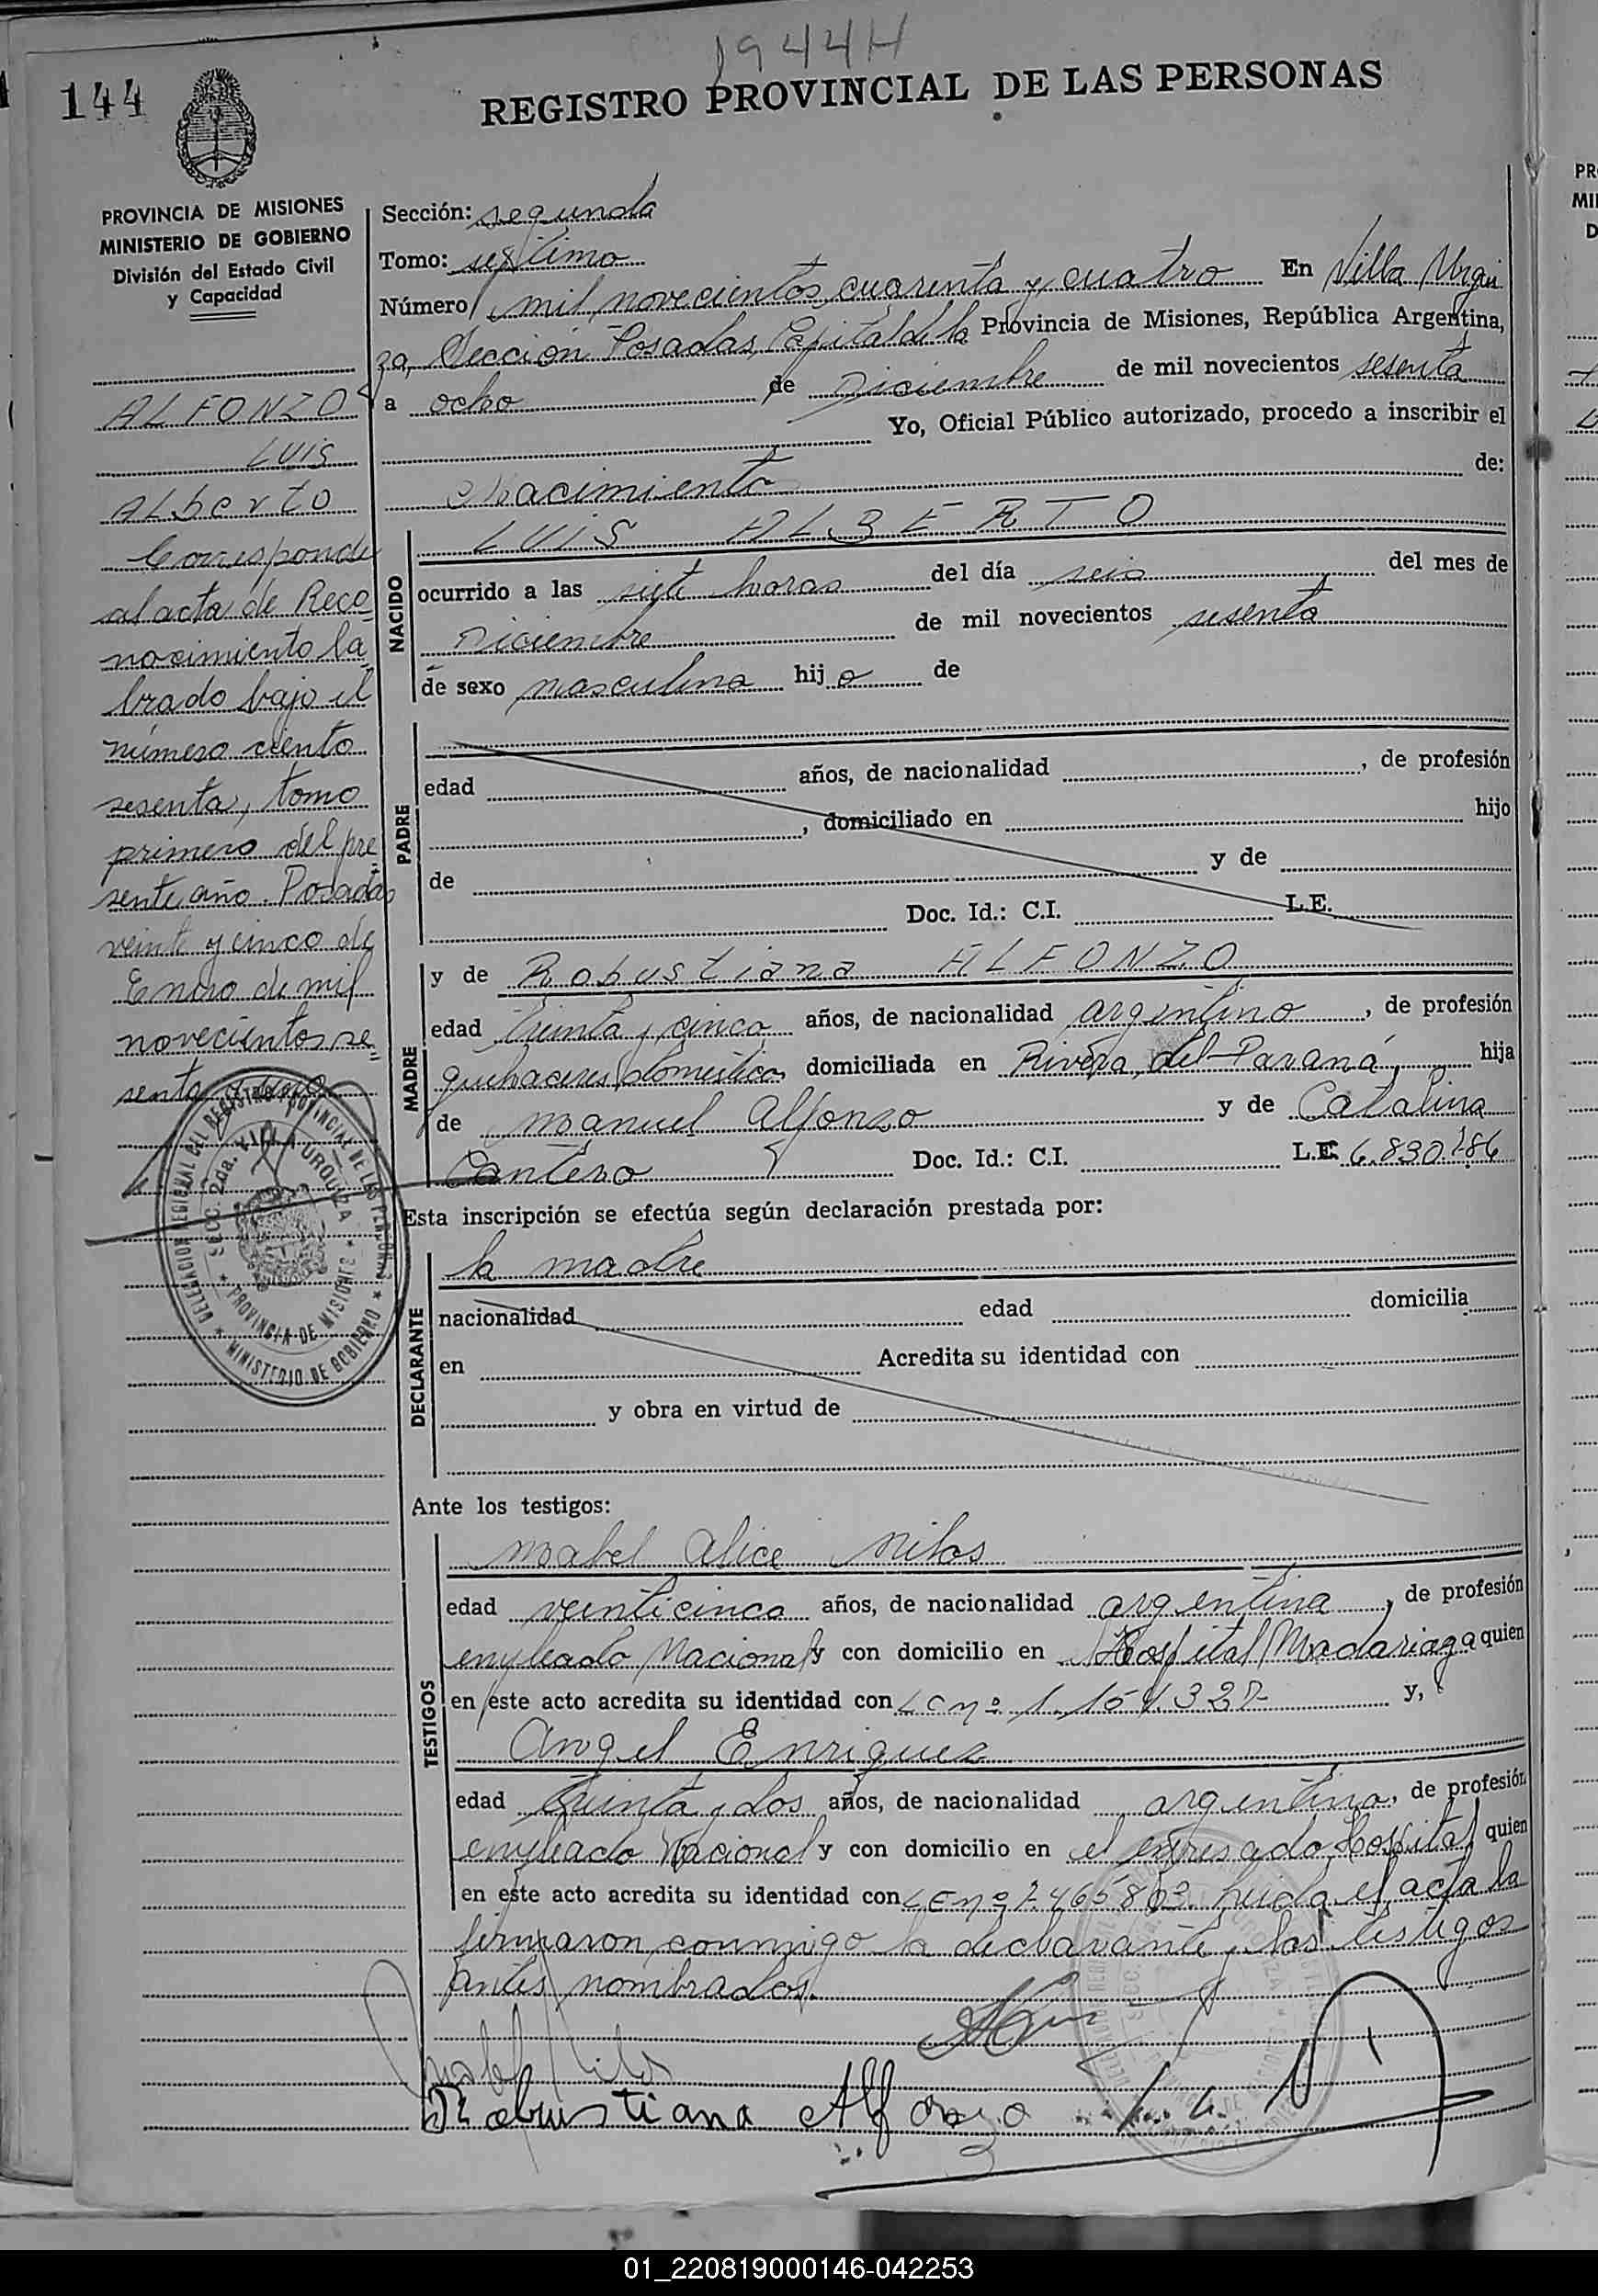 1944H
144
REGISTRO PROVINCIAL DE LAS PERSONAS
PROVINCIA DE MISIONES
MINISTERIO DE GOBIERNO
División del Estado Civil
y Capacidad
ALFONZO
LUIS
ALberto
Corresponde
al acta de Reco
nocimiento la
brado bajo el
número ciento
sesenta, tomo
primero del pre
sente año. Posadas
veinte y cinco de
Enero de mil
novecientos se
senta y uno
DELEGACION REGIONAL DEL REGISTRO PROVINCIAL DE LAS PERSONAS
SECC. 2da. VILLA URQUIZA
* PROVINCIA DE MISIONES *
* MINISTERIO DE GOBIERNO *
Sección: segunda
Tomo: septimo
Número mil novecientos cuarenta y cuatro En Villa Urqui
za, Sección Posadas, Capital de la Provincia de Misiones, República Argentina,
a ocho de Diciembre de mil novecientos sesenta
Yo, Oficial Público autorizado, procedo a inscribir el
Nacimiento de:
NACIDO
LUIS ALBERTO
ocurrido a las siete horas del día seis del mes de
Diciembre de mil novecientos sesenta
de sexo masculino hijo de
PADRE
edad años, de nacionalidad , de profesión
, domiciliado en hijo
de y de
Doc. Id.: C.I. L.E.
MADRE
y de Robustiana ALFONZO
edad treinta y cinco años, de nacionalidad argentino, de profesión
quehaceres domesticos domiciliada en Rivera del Paraná hija
de Manuel Alfonzo y de Catalina
Cantero Doc. Id.: C.I. L.E. 6.830.186
Esta inscripción se efectúa según declaración prestada por:
DECLARANTE
la madre
nacionalidad edad domicilia
en Acredita su identidad con
y obra en virtud de
Ante los testigos:
TESTIGOS
Mabel Alice Milos
edad veinticinco años, de nacionalidad argentina, de profesión
empleado Nacional y con domicilio en Hospital Madariaga quien
en este acto acredita su identidad con LC nº y,
Angel Enriquez
edad treinta y dos años, de nacionalidad argentina, de profesión
empleado Nacional y con domicilio en el expresado Hospital quien
en este acto acredita su identidad con LE nº 7.465.803 leida el acta la
firmaron conmigo la declarante y los testigos
antes nombrados.
Mabel Milos
Robustiana Alfonzo
01_220819000146-042253